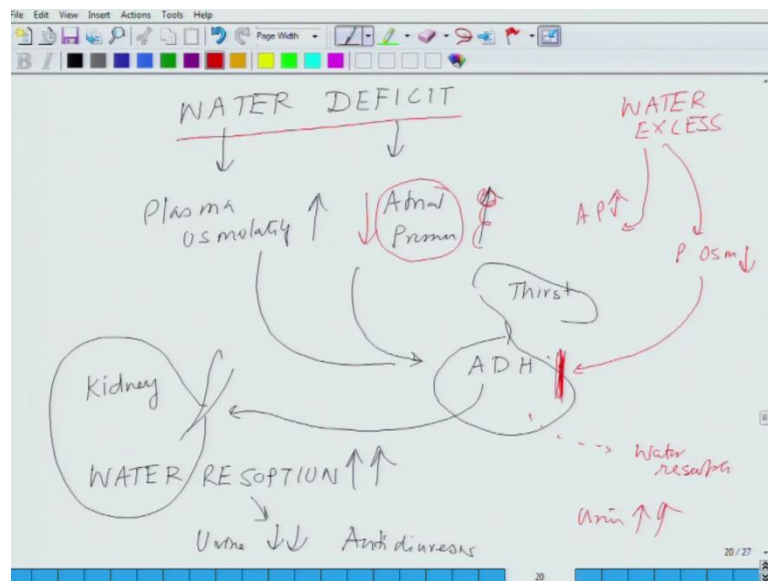 File Edit View Insert Actions Tools Help
Page Width
B I
WATER DEFICIT
WATER
EXCESS
Plasma
Osmolality ↑
↓ Atrial
Pressure
AP↑
P. Osm ↓
Thirst
ADH
Kidney
WATER RESOPTION ↑↑
Water
Urine ↓↓ Antidiuresis
Urin ↑↑
20 / 27
20